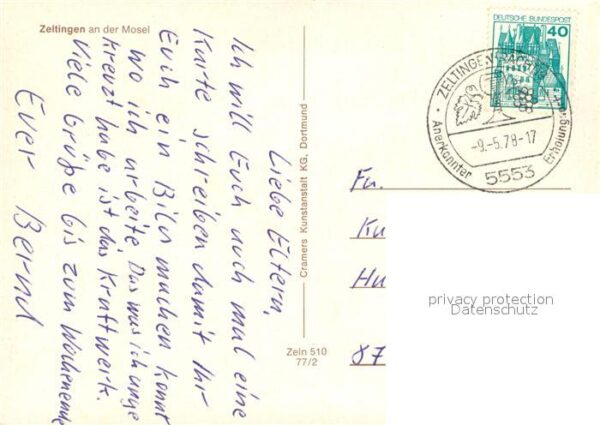 Zeltingen an der Mosel
Liebe Eltern,
Ich will Euch noch mal eine
Karte schreiben damit Ihr
Euch ein Bild machen könnt
wo ich arbeite Das was ich ange
kreuzt habe ist das Kraftwerk.
Viele Grüße bis zum Wochenende
Euer Bernd
Cramers Kunstanstalt KG, Dortmund
Zeln 510
77/2
DEUTSCHE BUNDESPOST
40
ZELTINGEN-RACHTIG
-9.-5.78-17
5553
Anerkannter Erholungsort
Fa.
Ku
Hu
87
privacy protection
Datenschutz